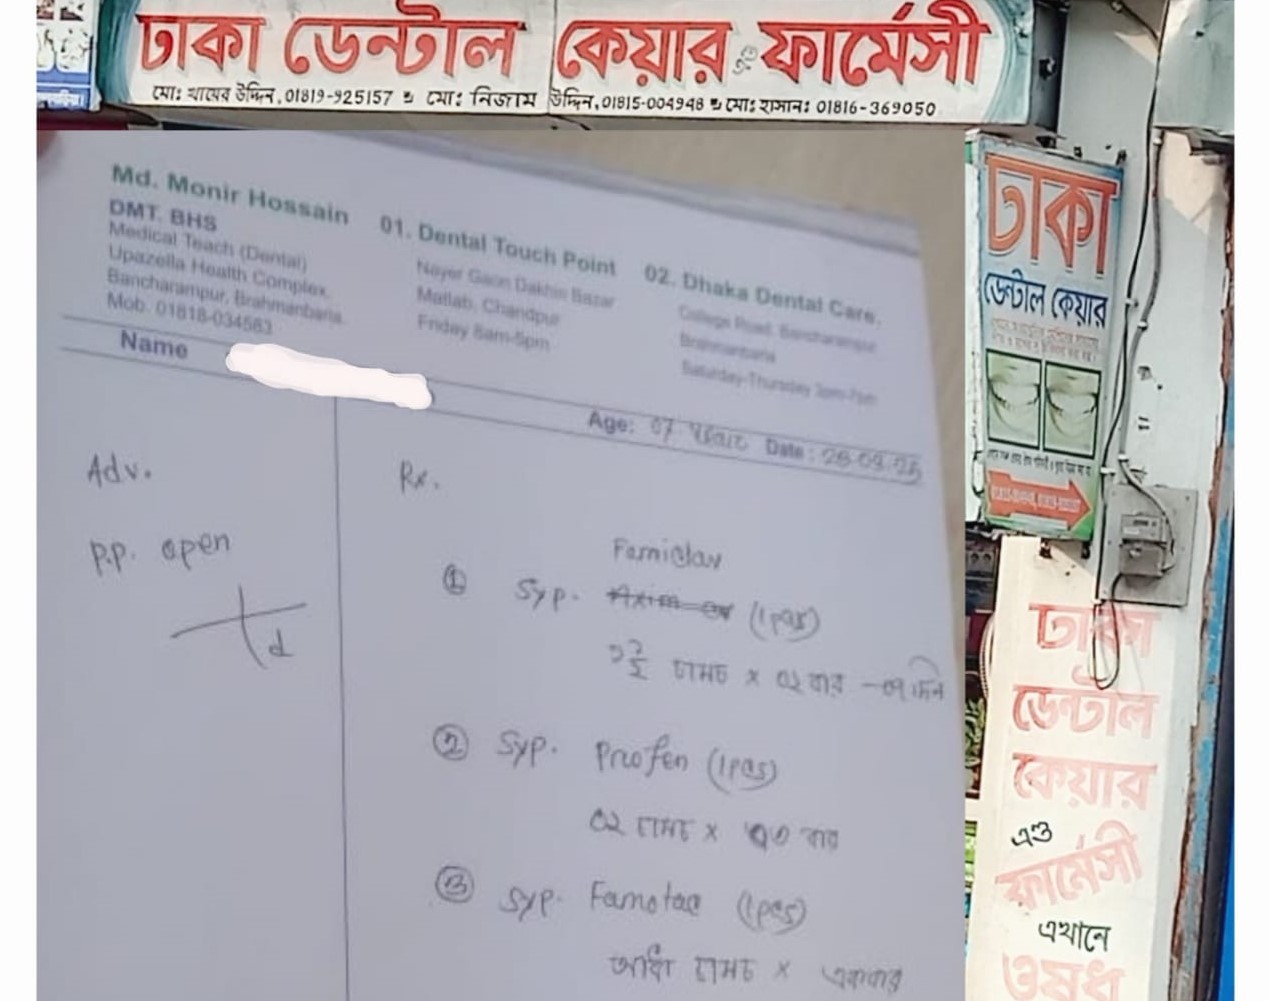 ঢাকা ডেন্টাল কেয়ার এন্ড ফার্মেসী
মোঃ খায়ের উদ্দিন, 01819-925157 ও মোঃ নিজাম উদ্দিন, 01815-004948 ও মোঃ হাসানঃ 01816-369050
Md. Monir Hossain
DMT. BHS
Medical Teach (Dental)
Upazella Health Complex
Bancharampur, Brahmanbaria
Mob. 01818-034583
01. Dental Touch Point
Nayer Gaon Dakhin Bazar
Matlab, Chandpur
Friday 8am-5pm
02. Dhaka Dental Care.
College Road, Bancharampur
Brahmanbaria
Saturday-Thursday 3pm-7pm
Name
Age: 07 Date:
Adv.
P.P. open
d
Rx.
① Syp. Famiclav (1pcs)
১ ১/২ চামচ x ০২ বার - ০৭ দিন
② Syp. Profen (1pcs)
০২ চামচ x ০৩ বার
③ Syp. Famotac (1pcs)
আধা চামচ x একবার
ঢাকা
ডেন্টাল কেয়ার
ঢাকা
ডেন্টাল
কেয়ার
এণ্ড
ফার্মেসী
এখানে
ঔষধ